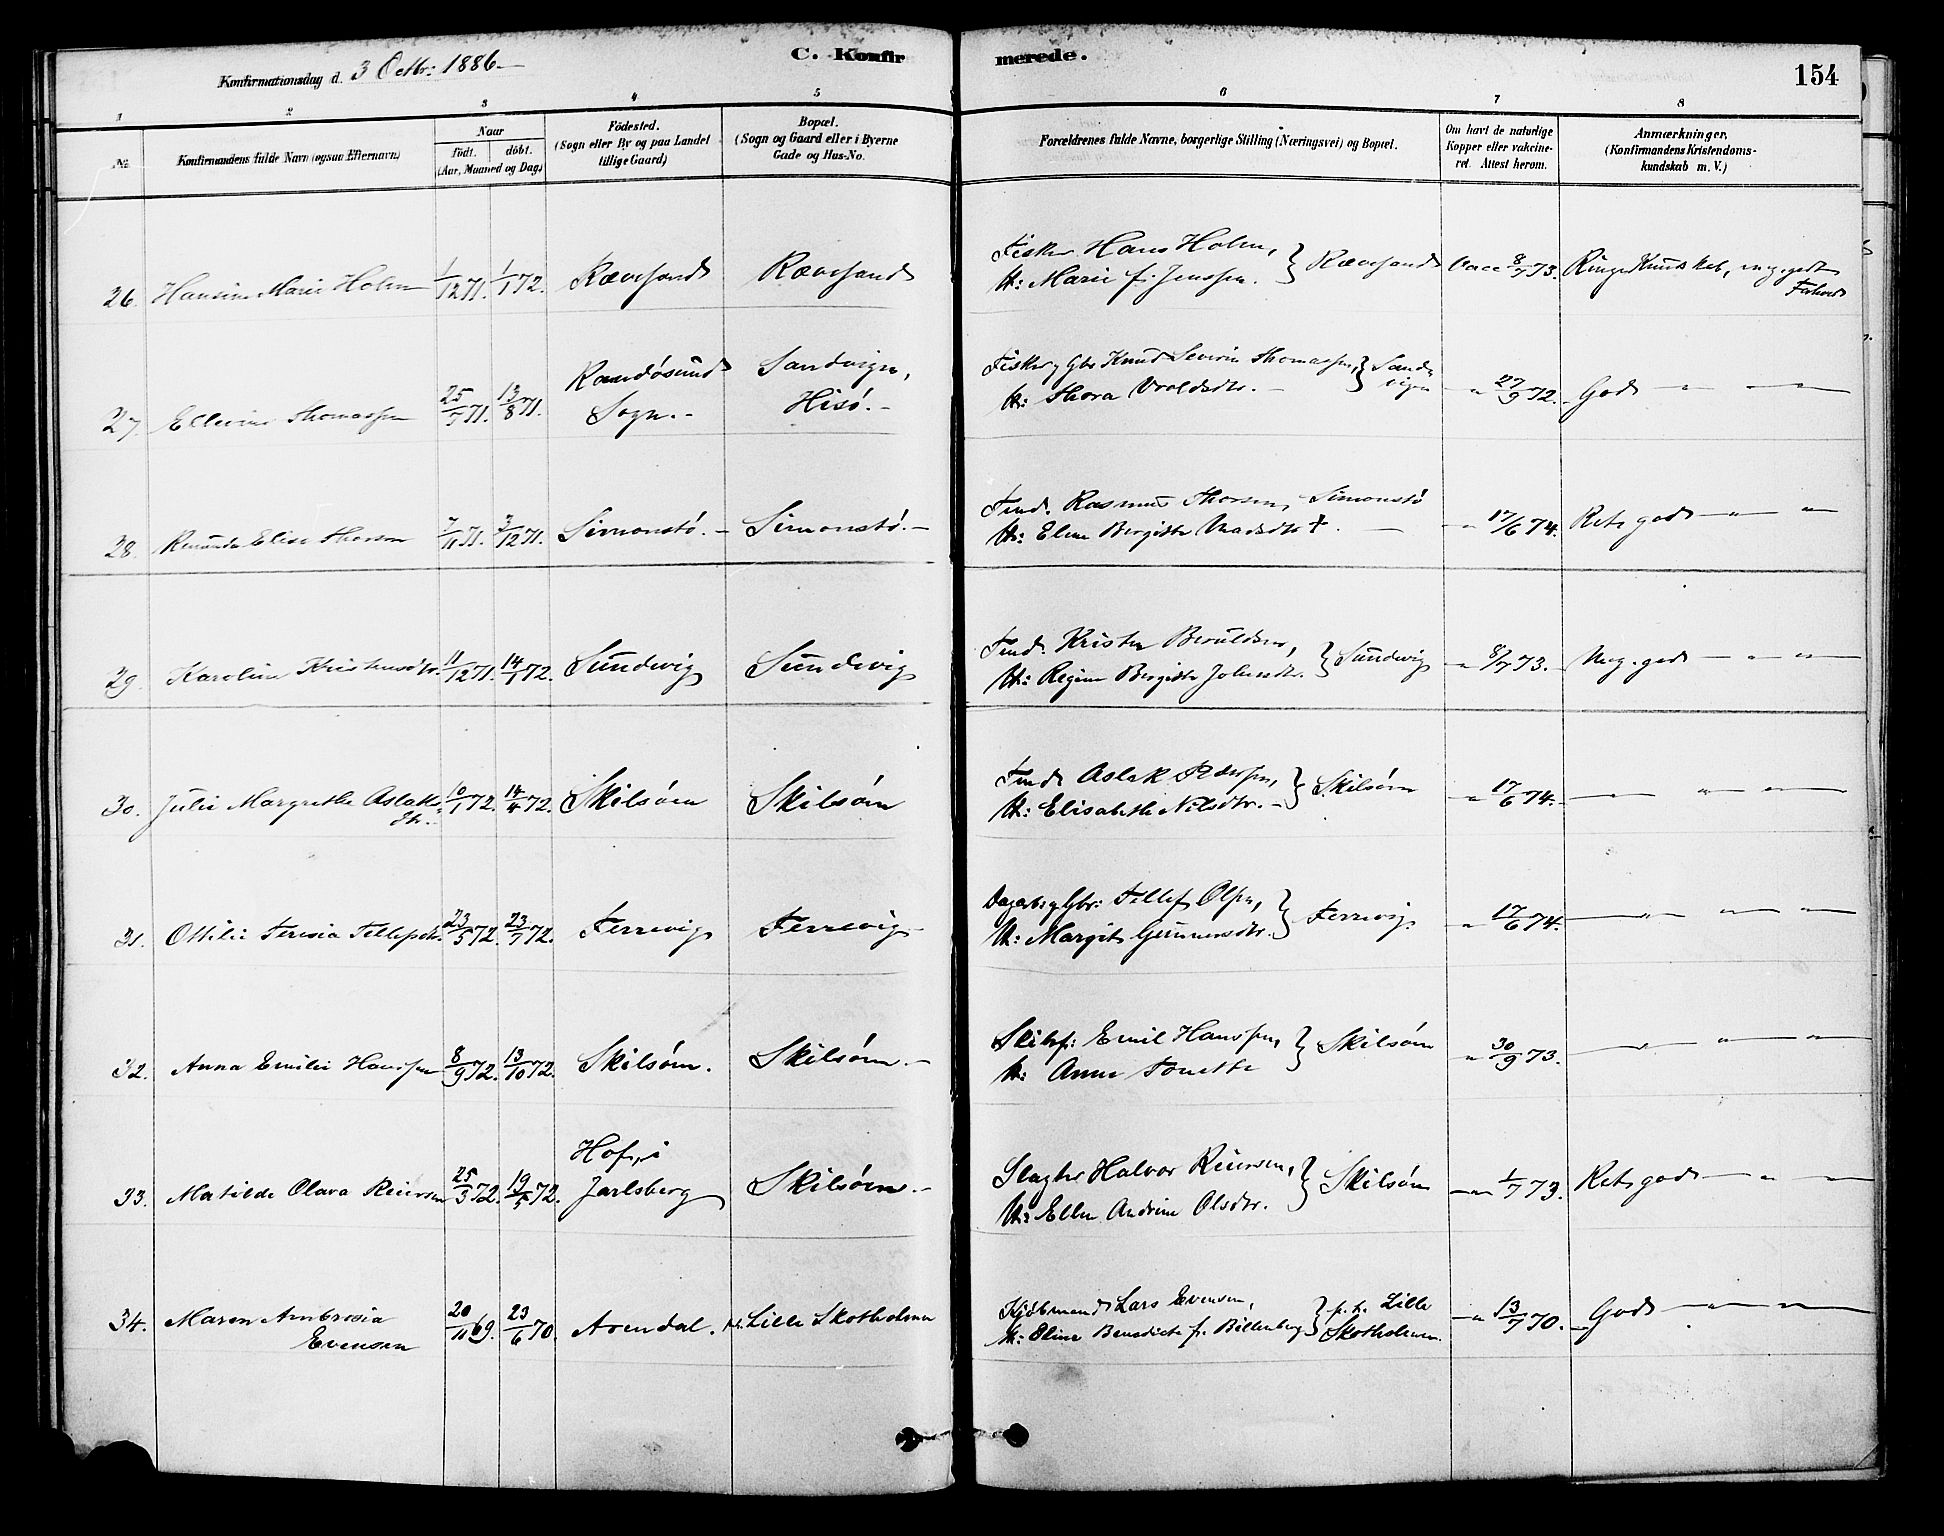 Konfirmationsdag d. 3 Octbr: 1886.—
C. Konfirmerede.
154
1 2 3 4 5 6 7 8
No.
Konfirmandens fulde Navn (ogsaa Efternavn)
Naar
födt. döbt.
(Aar, Maaned og Dag)
Födested.
(Sogn eller By og paa Landet
tillige Gaard)
Bopæl.
(Sogn og Gaard eller i Byerne
Gade og Hus-No.
Forældrenes fulde Navne, borgerlige Stilling (Næringsvei) og Bopæl.
Om havt de naturlige
Kopper eller vakcine-
ret. Attest herom.
Anmærkninger,
(Konfirmandens Kristendoms-
kundskab m. V.)
26. Hansine Marie Holm 1/12 71. 1/1 72. Rævesand Rævesand
Fisker Hans Holm,
H: Marie f. Jenssen. } Rævesand Vacc 8/7 73. Ringe Kundskab, meg. godt
Forhold
27. Ellevine Thomassen 25/7 71. 13/8 71. Randösund
Sogn.- Sandvigen,
Hisö.-
Fisker og Gbr Knud Severin Thomassen,
H: Thora Uvoldsdtr. - } Sand-
vigen - " 27/9 72. God — " — " —
28. Elise Thorsen 7/11 71. 3/12 71. Simonstö. - Simonstö. -
Tmd. Rasmus Thorsen, Simonstö
H: Eline Birgitte Madsdtr † . — - " 17/6 74. Rets god — " — "
29. Karoline Kristensdtr. 11/12 71. 14/1 72. Sundvig Sundvig
Tmd. Kristen Beruldsen,
H: Regine Birgitte Johnsdtr. } Sundvig - " 8/7 73. Meg. god — " — " —
30. Julie Margrethe Aslaks-
dtr. 10/1 72. 14/4 72. Skilsöm Skilsöm
Tmd Aslak Pedersen,
H: Elisabeth Nilsdtr. - } Skilsöm - " 17/6 74. — " — " — " —
31. Ottilie Teresia Tellefsdtr. 23/5 72. 23/7 72. Terrevig Terrevig
Dagarb. og Gbr: Tellef Olsen,
H: Margit Gunnersdtr. } Terrevig. - " 17/6 74. — " — " — " —
32. Anna Emilie Hanssen 8/9 72. 13/10 72. Skilsöm. Skilsöm. -
Skibsf: Emil Hanssen,
H: Anne Tonette } Skilsöm - " 30/9 73. — " — " — " —
33. Matilde Olava Reiersen 25/3 72. 19/5 72. Hof, i
Jarlsberg Skilsöm. -
Slagter Halvor Reiersen,
H: Ellen Andrine Olsdtr. } Skilsöm — " 1/7 73. Rets god — " — " —
34. Maren Ambrosia
Evensen 20/11 69. 23/6 70. Arendal. Lille Skotholmen
Kjöbmand Lars Evensen,
H: Oline Benedicte f. Billenberg } p. t. Lille
Skotholmen. - " 13/7 70. - God — " — " —